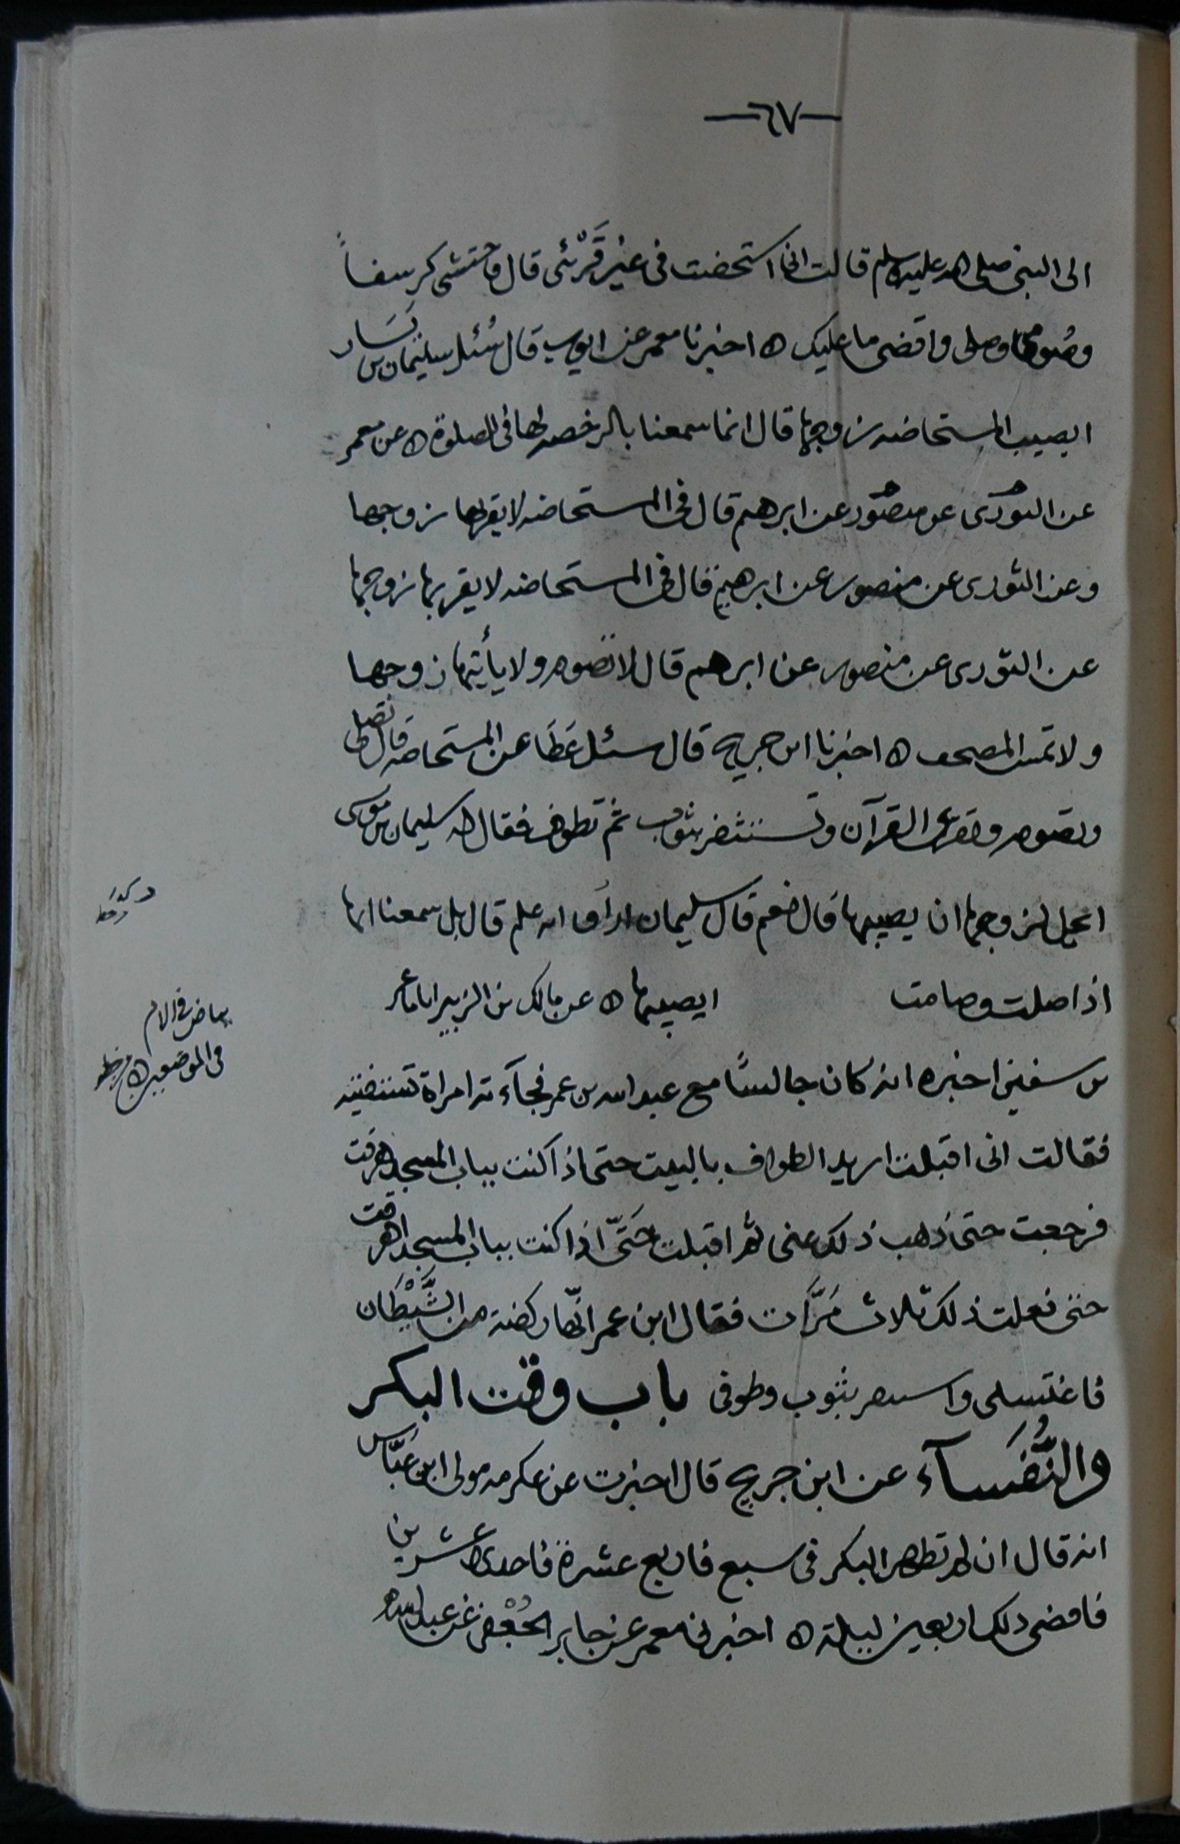 —٦٧—
الى النبى صلى الله عليه وسلم قالت انى استحضت فى غير قَرْئى قال فاحتشى كرسفاً
وصُومى وصلى واقضى ما عليك ه اخبرنا معمر عن ايوب قال سُئل سليمان بن يَسَار
ايصيب المستحاضه زوجها قال انما سمعنا بالرخصه لها فى الصلوة ه عن معمر
عن الثورى عن منصور عن ابرهيم قال فى المستحاضه لا يقربها زوجها
وعن الثورى عن منصور عن ابرهيم قال فى المستحاضه لا يقربها زوجها
عن الثورى عن منصور عن ابرهيم قال لا تصوم ولا يأتيها زوجها
ولا تمس المصحف ه اخبرنا ابن جريج قال سئل عَطَا عن المستحاضه قال تصلى
وتصوم وتقرى القرآن وتستثفر بثوب ثم تطوف فقال له سليمان بن موسى
ايحل لزوجها ان يصيبها قال نعم قال سليمان اراى ام علم قال بل سمعنا انها
اذا صلت وصامت ايصيبها ه عن مالك بن الزبير اباماعز
بن سفين اخبره انه كان جالسًا مع عبد الله بن عمر فجآءته امراة تستفتيه
فقالت انى اقبلت اريد الطواف بالبيت حتى اذا كنت بباب المسجد اهرقت
فرجعت حتى ذهب ذلك عنى ثم اقبلت حَتَّى اذا كنت بباب المسجد اهرقت
حتى فعلت ذلك ثلاث مَرَّات فقال ابن عمر انّها ركضة من الشَّيْطَان
فاغتسلى واستثفر بثوب وطوفى باب وقت البكر
والنُّفَسآء عن ابن جريج قال اخبرت عن عكرمه مولى ابن عَبَّاس
انه قال ان لم تطهر البكر فى سبع فاربع عشرة فاحدى عشرين
فاقضى ذلك اربعين ليلة ه اخبرنى معمر عن جابر الجُعْفى عن عبد الله
بياض فى الام
فى الموضعين